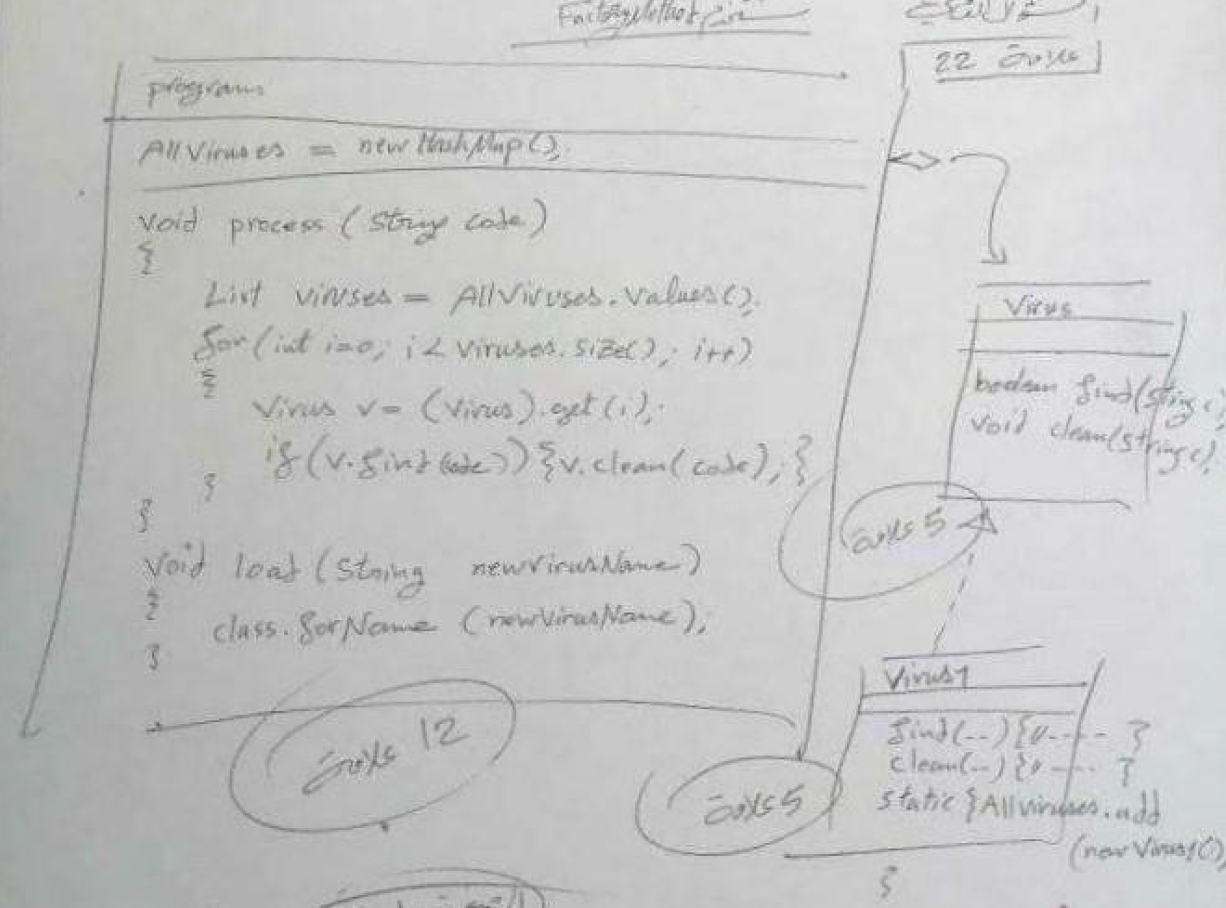 FactoryMethod
22 علامة
program
AllViruses = new HashMap();
void process (String code)
{
List viruses = AllViruses.values();
for (int i=0; i < viruses.size(); i++)
{
Virus v = (Virus).get(i);
if (v.find(code)) {v.clean(code); }
}
}
void load (String newVirusName)
{
class.forName (newVirusName);
}
علامة 12
Virus
boolean find(String c)
void clean(String c);
علامة 5
Virus1
find(--) {// ---- }
clean(--) {// ---- }
static {AllViruses.add
(new Virus1()
}
علامة 5